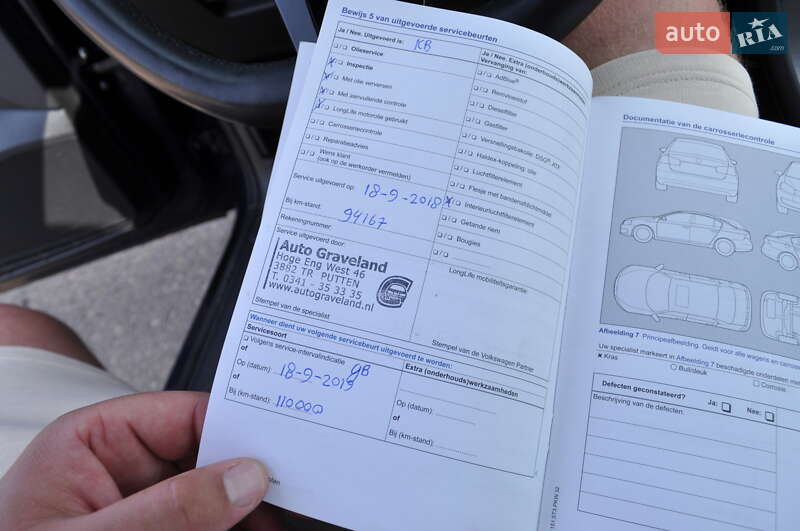 Bewijs 5 van uitgevoerde servicebeurten
Je / Nee. Uitgevoerd is: KB
Olieservice
Inspectie
Met olie verversen
Met aanvullende controle
LongLife motorolie gebruikt
Carrosseriecontrole
Reparatieadvies
Wens klant
(ook op de werkorder vermelden)
Service uitgevoerd op: 18-9-2018
Bij km-stand: 94167
Rekeningnummer:
Service uitgevoerd door:
Auto Graveland
Hoge Eng West 46
3882 TR PUTTEN
T. 0341 - 35 33 35
www.autograveland.nl
Stempel van de specialist
Je / Nee. Extra (onderhouds)werkzaamheden
Vervanging van:
AdBlue®
Remvloeistof
Dieselfilter
Gasfilter
Versnellingsbakolie: DSG®
Haldex-koppeling: olie
Luchtfilterelement
Flesje met bandenafdichtmiddel
X Interieurluchtfilterelement
Getande riem
Bougies
LongLife mobiliteitsgarantie:
Stempel van de Volkswagen Partner
Wanneer dient uw volgende servicebeurt uitgevoerd te worden:
Servicesoort
Volgens service-intervalindicatie GB
of
Op (datum): 18-9-2019
of
Bij (km-stand): 110000
Extra (onderhouds)werkzaamheden
Op (datum):
of
Bij (km-stand):
Documentatie van de carrosseriecontrole
Afbeelding 7 Principeafbeelding. Geldt voor alle wagens en carrosse
Uw specialist markeert in Afbeelding 7 beschadigde onderdelen me
× Kras
○ Buil/deuk
□ Corrosie
Defecten geconstateerd?
Ja:
Nee:
Beschrijving van de defecten:
auto RIA .com